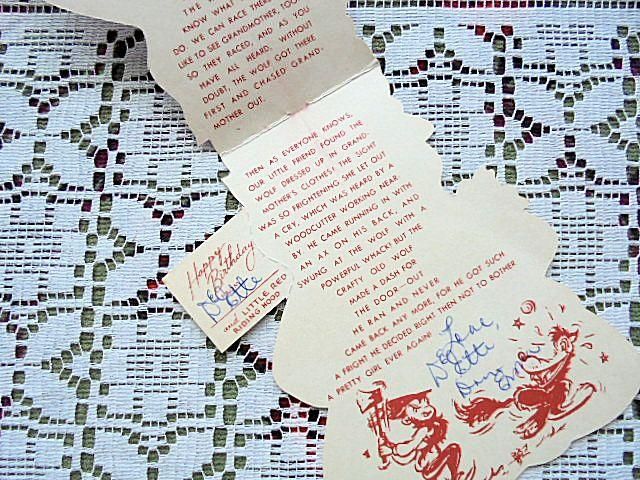 THE
KNOW WHAT
DO. WE CAN RACE THERE
LIKE TO SEE GRANDMOTHER, TOO.
SO THEY RACED, AND AS YOU
HAVE ALL HEARD, WITHOUT
DOUBT, THE WOLF GOT THERE
FIRST AND CHASED GRAND-
MOTHER OUT.
THEN AS EVERYONE KNOWS,
OUR LITTLE FRIEND FOUND THE
WOLF DRESSED UP IN GRAND-
MOTHER'S CLOTHES! THE SIGHT
WAS SO FRIGHTENING SHE LET OUT
A CRY, WHICH WAS HEARD BY A
WOODCUTTER WORKING NEAR
BY. HE CAME RUNNING IN WITH
AN AX ON HIS BACK, AND
SWUNG AT THE WOLF WITH A
POWERFUL WHACK! BUT THE
CRAFTY OLD WOLF
MADE A DASH FOR
THE DOOR—OUT
HE RAN AND NEVER
CAME BACK ANY MORE, FOR HE GOT SUCH
A FRIGHT HE DECIDED RIGHT THEN NOT TO BOTHER
A PRETTY GIRL EVER AGAIN!
Happy
Birthday
and LITTLE RED
RIDING HOOD
Love,